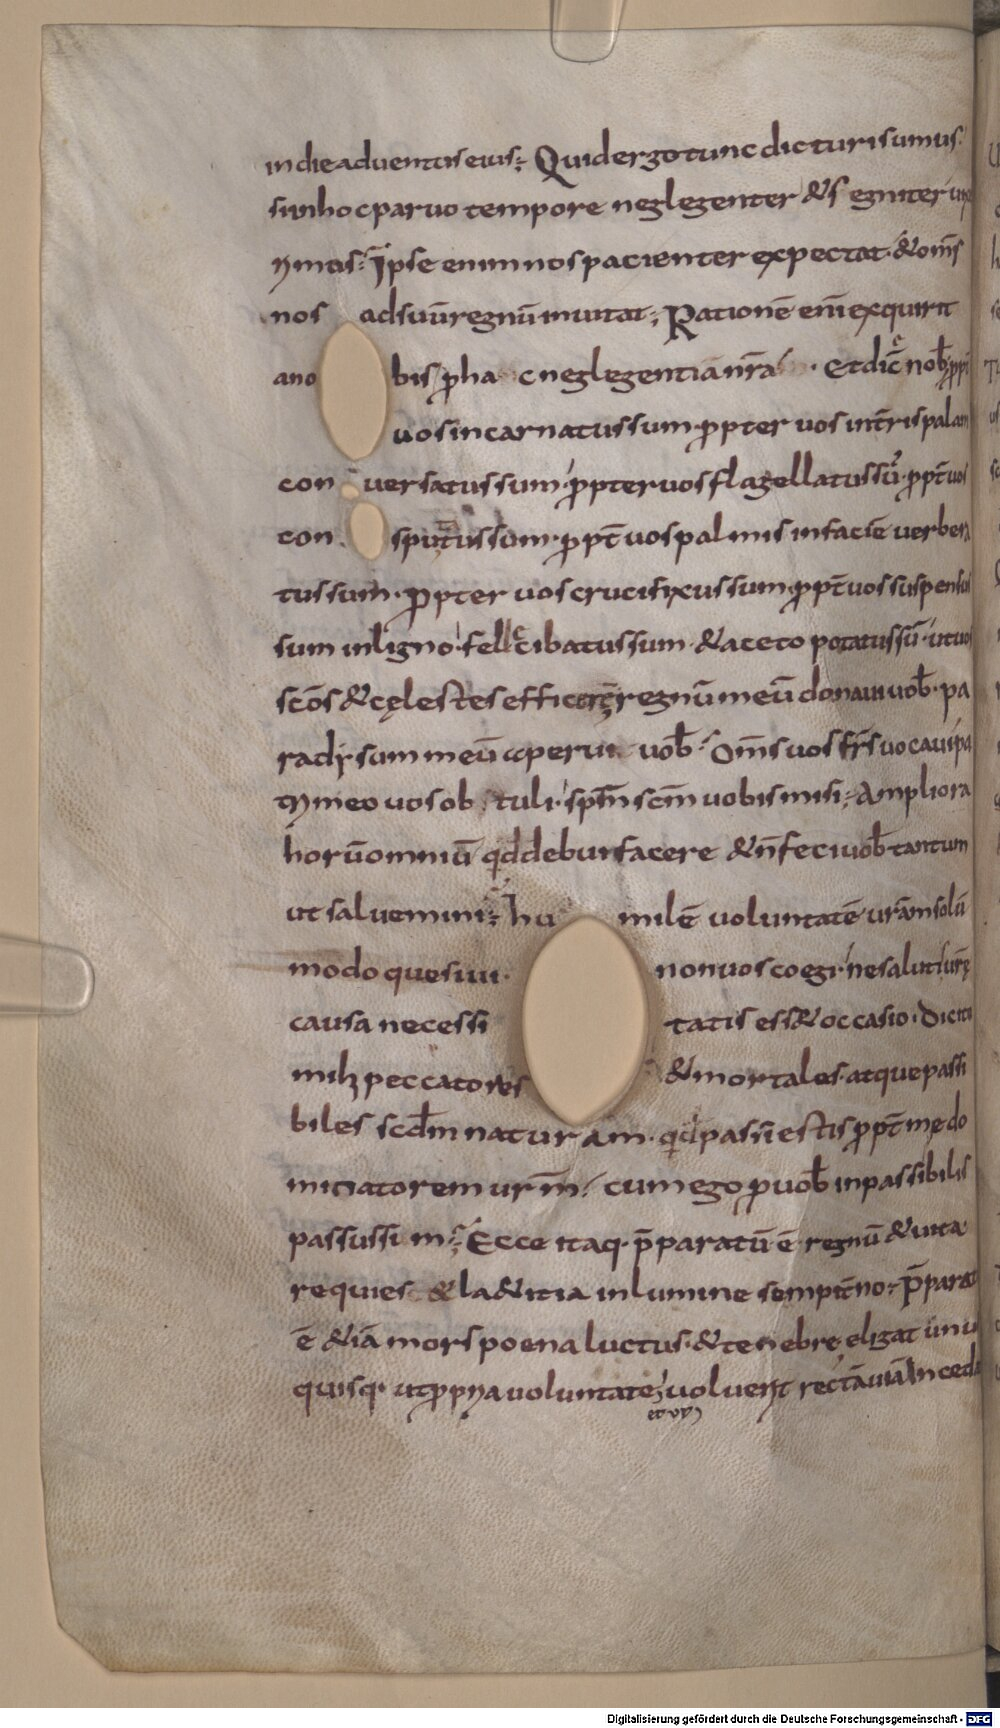 in die aduentus eius; Quid ergo tunc dicturi sumus.
si in hoc paruo tempore neglegenter & segniter uix
rimus; Ipse enim nos pacienter expectat. & om̄s
nos ad suū regnū inuitat; Rationē enī exquirit
a no bis p̱ hac neglegentia nr̄a. Et dic̄ nob̄ pp̄
uos incarnatus sum. propter uos in tr̄is palam
con uersatus sum. propter uos flagellatus sū. ppt̄ uos
con sputus sum. ppt̄ uos palmis in faciē uerbera
tus sum. Propter uos crucifixus sum. ppt̄ uos suspensus
sum in ligno. felle cibatus sum. & aceto potatus sū. ut uos
sc̄os & cęlestes efficerē regnū meū donaui uob̄. pa
radysum meū aperui uob̄. Om̄s uos fr̄s uocaui pa
tri meo uos ob tuli. sp̄m sc̄m uobis misi; Ampliora
horū omniū qđ debui facere & n̄ feci uob̄ tantum
ut saluemini; hu milē uoluntatē ur̄am solū
modo quesiui. non uos coegi. ne salutis ur̄ę
causa necessi tatis ess& occasio. Dicite
mihi peccatores & mortales. atque passi
biles scd̄m naturam. qđ passi estis ppt̄ me do
minatorem ur̄m. cum ego p̱ uob̄ inpassibilis
passus sim; Ecce itaq. p̄paratū ē regnū & uita
requies & la&itia in lumine sempit̄no; P̄parat
ē &iā mors poena luctus. & tenebrę eligat unus
quisq. ut propria uoluntate uoluerit rectā uiā inced